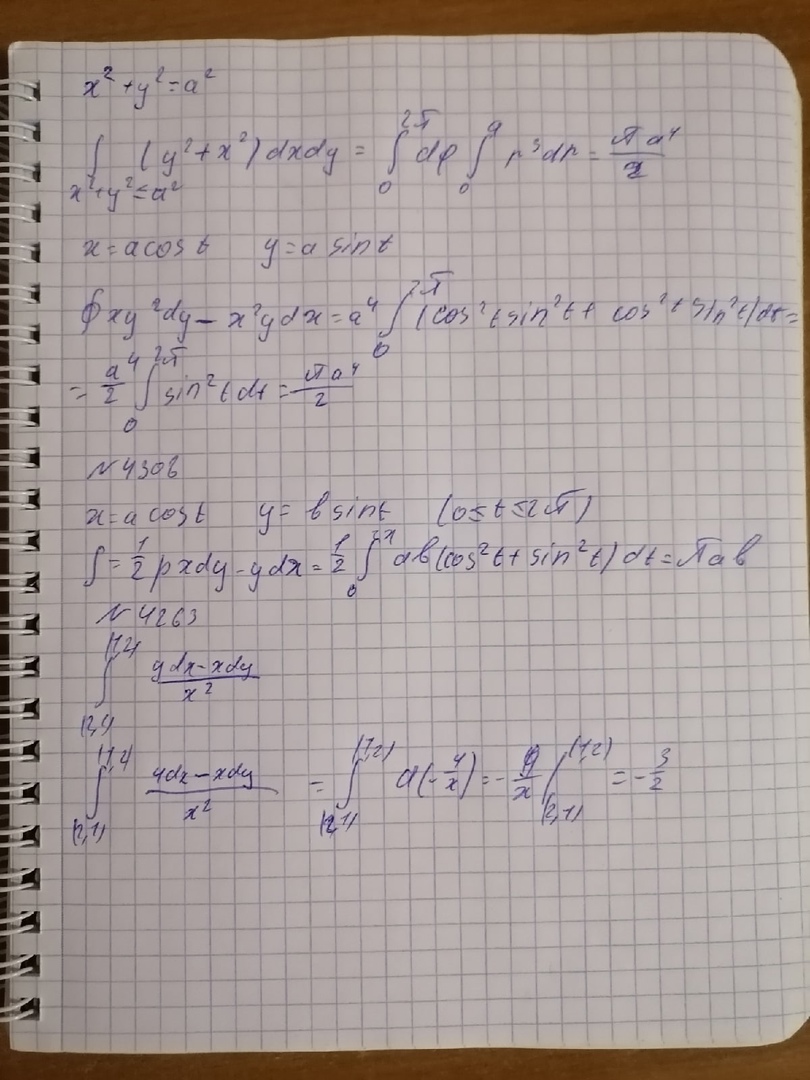 x² + y² = a²
∫_{x²+y²≤a²} (y² + x²) dxdy = ∫₀^{2π} dφ ∫₀^a r³dr = πa⁴/2
x = a cos t y = a sin t
∮ xy²dy − x²y dx = a⁴ ∫₀^{2π} (cos²t sin²t + cos²t sin²t) dt =
= a⁴/2 ∫₀^{2π} sin²t dt = πa⁴/2
№4308
x = a cos t y = b sin t (0 ≤ t ≤ 2π)
S = 1/2 ∮ xdy − ydx = 1/2 ∫₀^{2π} ab(cos²t + sin²t) dt = πab
№4263
∫_{(2,1)}^{(1,2)} (ydx − xdy)/x²
∫_{(2,1)}^{(1,2)} (ydx − xdy)/x² = ∫_{(2,1)}^{(1,2)} d(−y/x) = −y/x |_{(2,1)}^{(1,2)} = −3/2